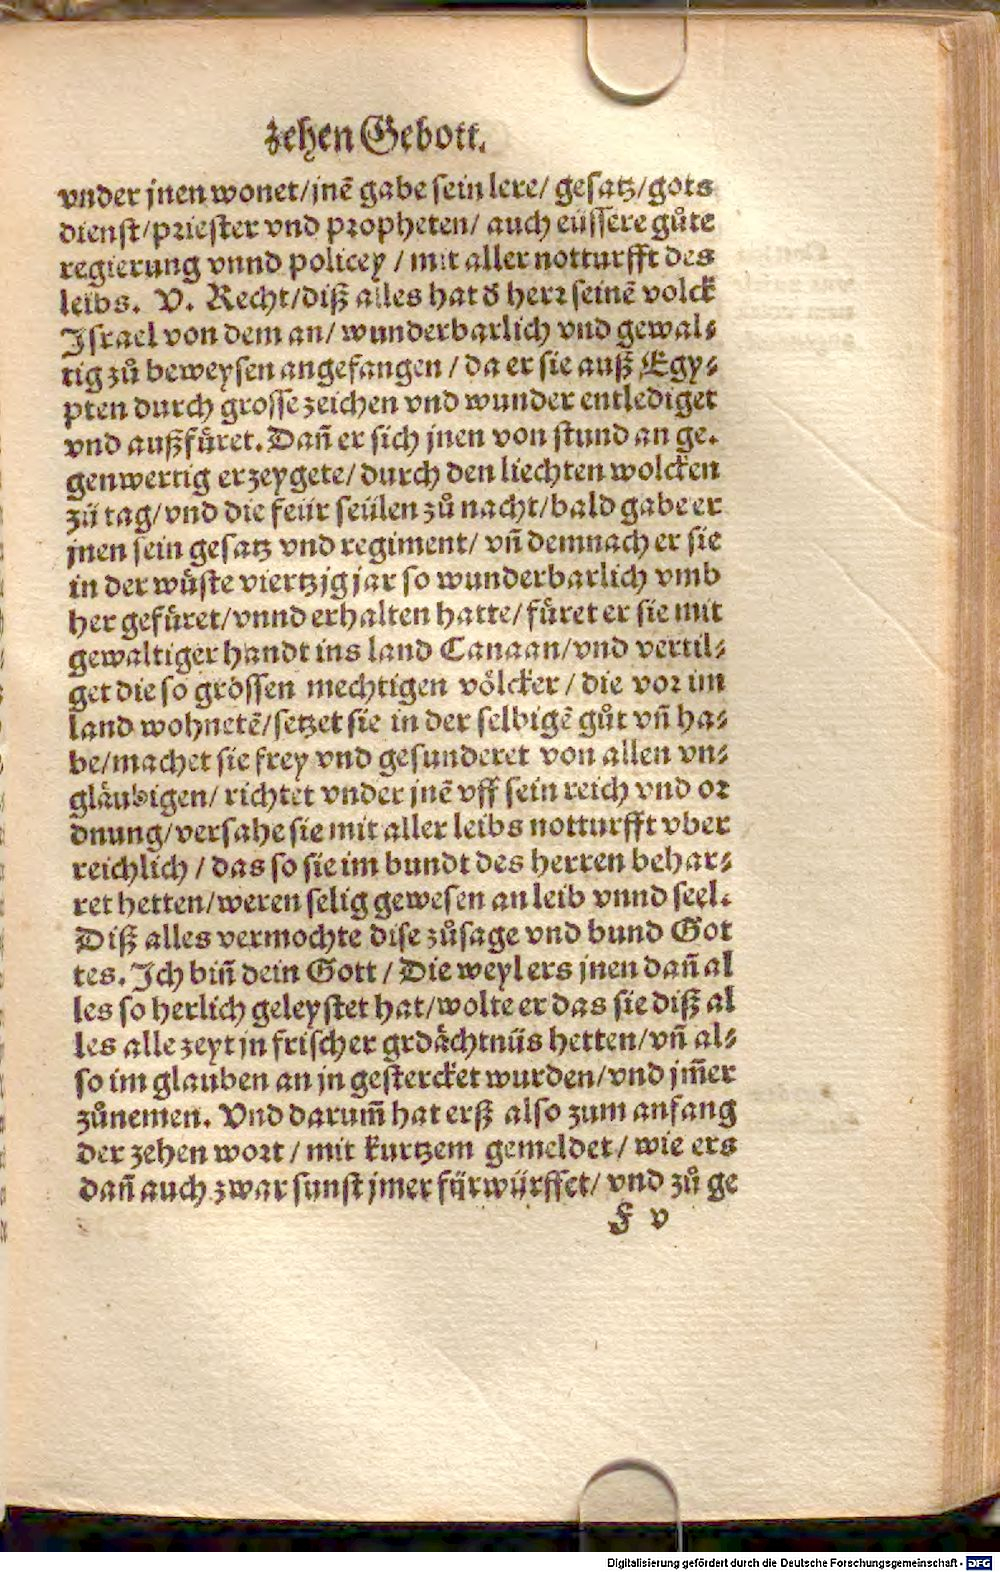 zehen Gebott.
vnder jnen wonet/jnẽ gabe sein lere/ gesatz/gots
dienst/priester vnd propheten/ auch eüssere gůte
regierung vnnd policey / mit aller notturfft des
leibs. V. Recht/diß alles hat d̕ herr seinẽ volck
Israel von dem an/ wunderbarlich vnd gewal⸗
tig zů beweysen angefangen / da er sie auß Egy⸗
pten durch grosse zeichen vnd wunder entlediget
vnd außfüret. Dañ er sich jnen von stund an ge.
genwertig erzeygete/ durch den liechten wolcken
zů tag/vnd die feür seülen zů nacht/bald gabe er
jnen sein gesatz vnd regiment/ vñ demnach er sie
in der wüste viertzjg jar so wunderbarlich vmb
her gefüret/vnnd erhalten hatte/ füret er sie mit
gewaltiger handt ins land Canaan/vnd vertil⸗
get die so grossen mechtigen völcker / die vor im
land wohnetẽ/setzet sie in der selbigẽ gůt vñ ha⸗
be/machet sie frey vnd gesunderet von allen vn⸗
gläubigen/ richtet vnder jnẽ vff sein reich vnd or
dnung/versahe sie mit aller leibs notturfft vber
reichlich / das so sie im bundt des herren behar⸗
ret hetten/weren selig gewesen an leib vnnd seel.
Diß alles vermochte dise zůsage vnd bund Got
tes. Ich biñ dein Gott / Die weyl ers jnen dañ al
les so herlich geleystet hat/wolte er das sie diß al
les alle zeyt jn frischer grdächtnüs hetten/vñ al⸗
so im glauben an jn gestercket wurden/vnd jm̃er
zůnemen. Vnd darum̃ hat erß also zum anfang
der zehen wort / mit kurtzem gemeldet/ wie ers
dañ auch zwar sunst jmer fürwürffet/ vnd zů ge
F v
Digitalisierung gefördert durch die Deutsche Forschungsgemeinschaft - DFG